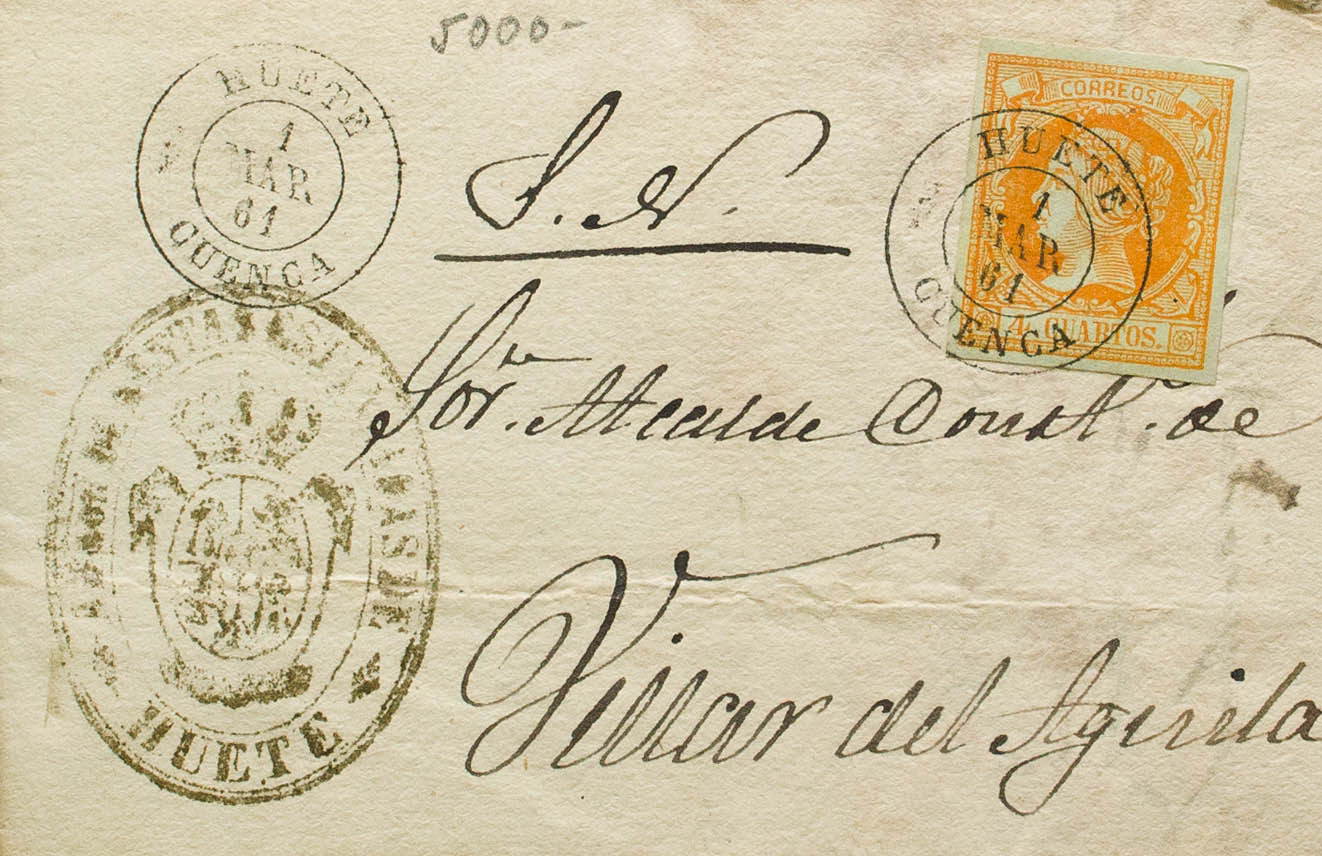 5000-
HUETE
1
MAR
61
CUENCA
S. N.
CORREOS
HUETE
1
MAR
61
CUENCA
4 CUARTOS.
Sor. Alcalde Const. de
Villar del Aguila
HUETE